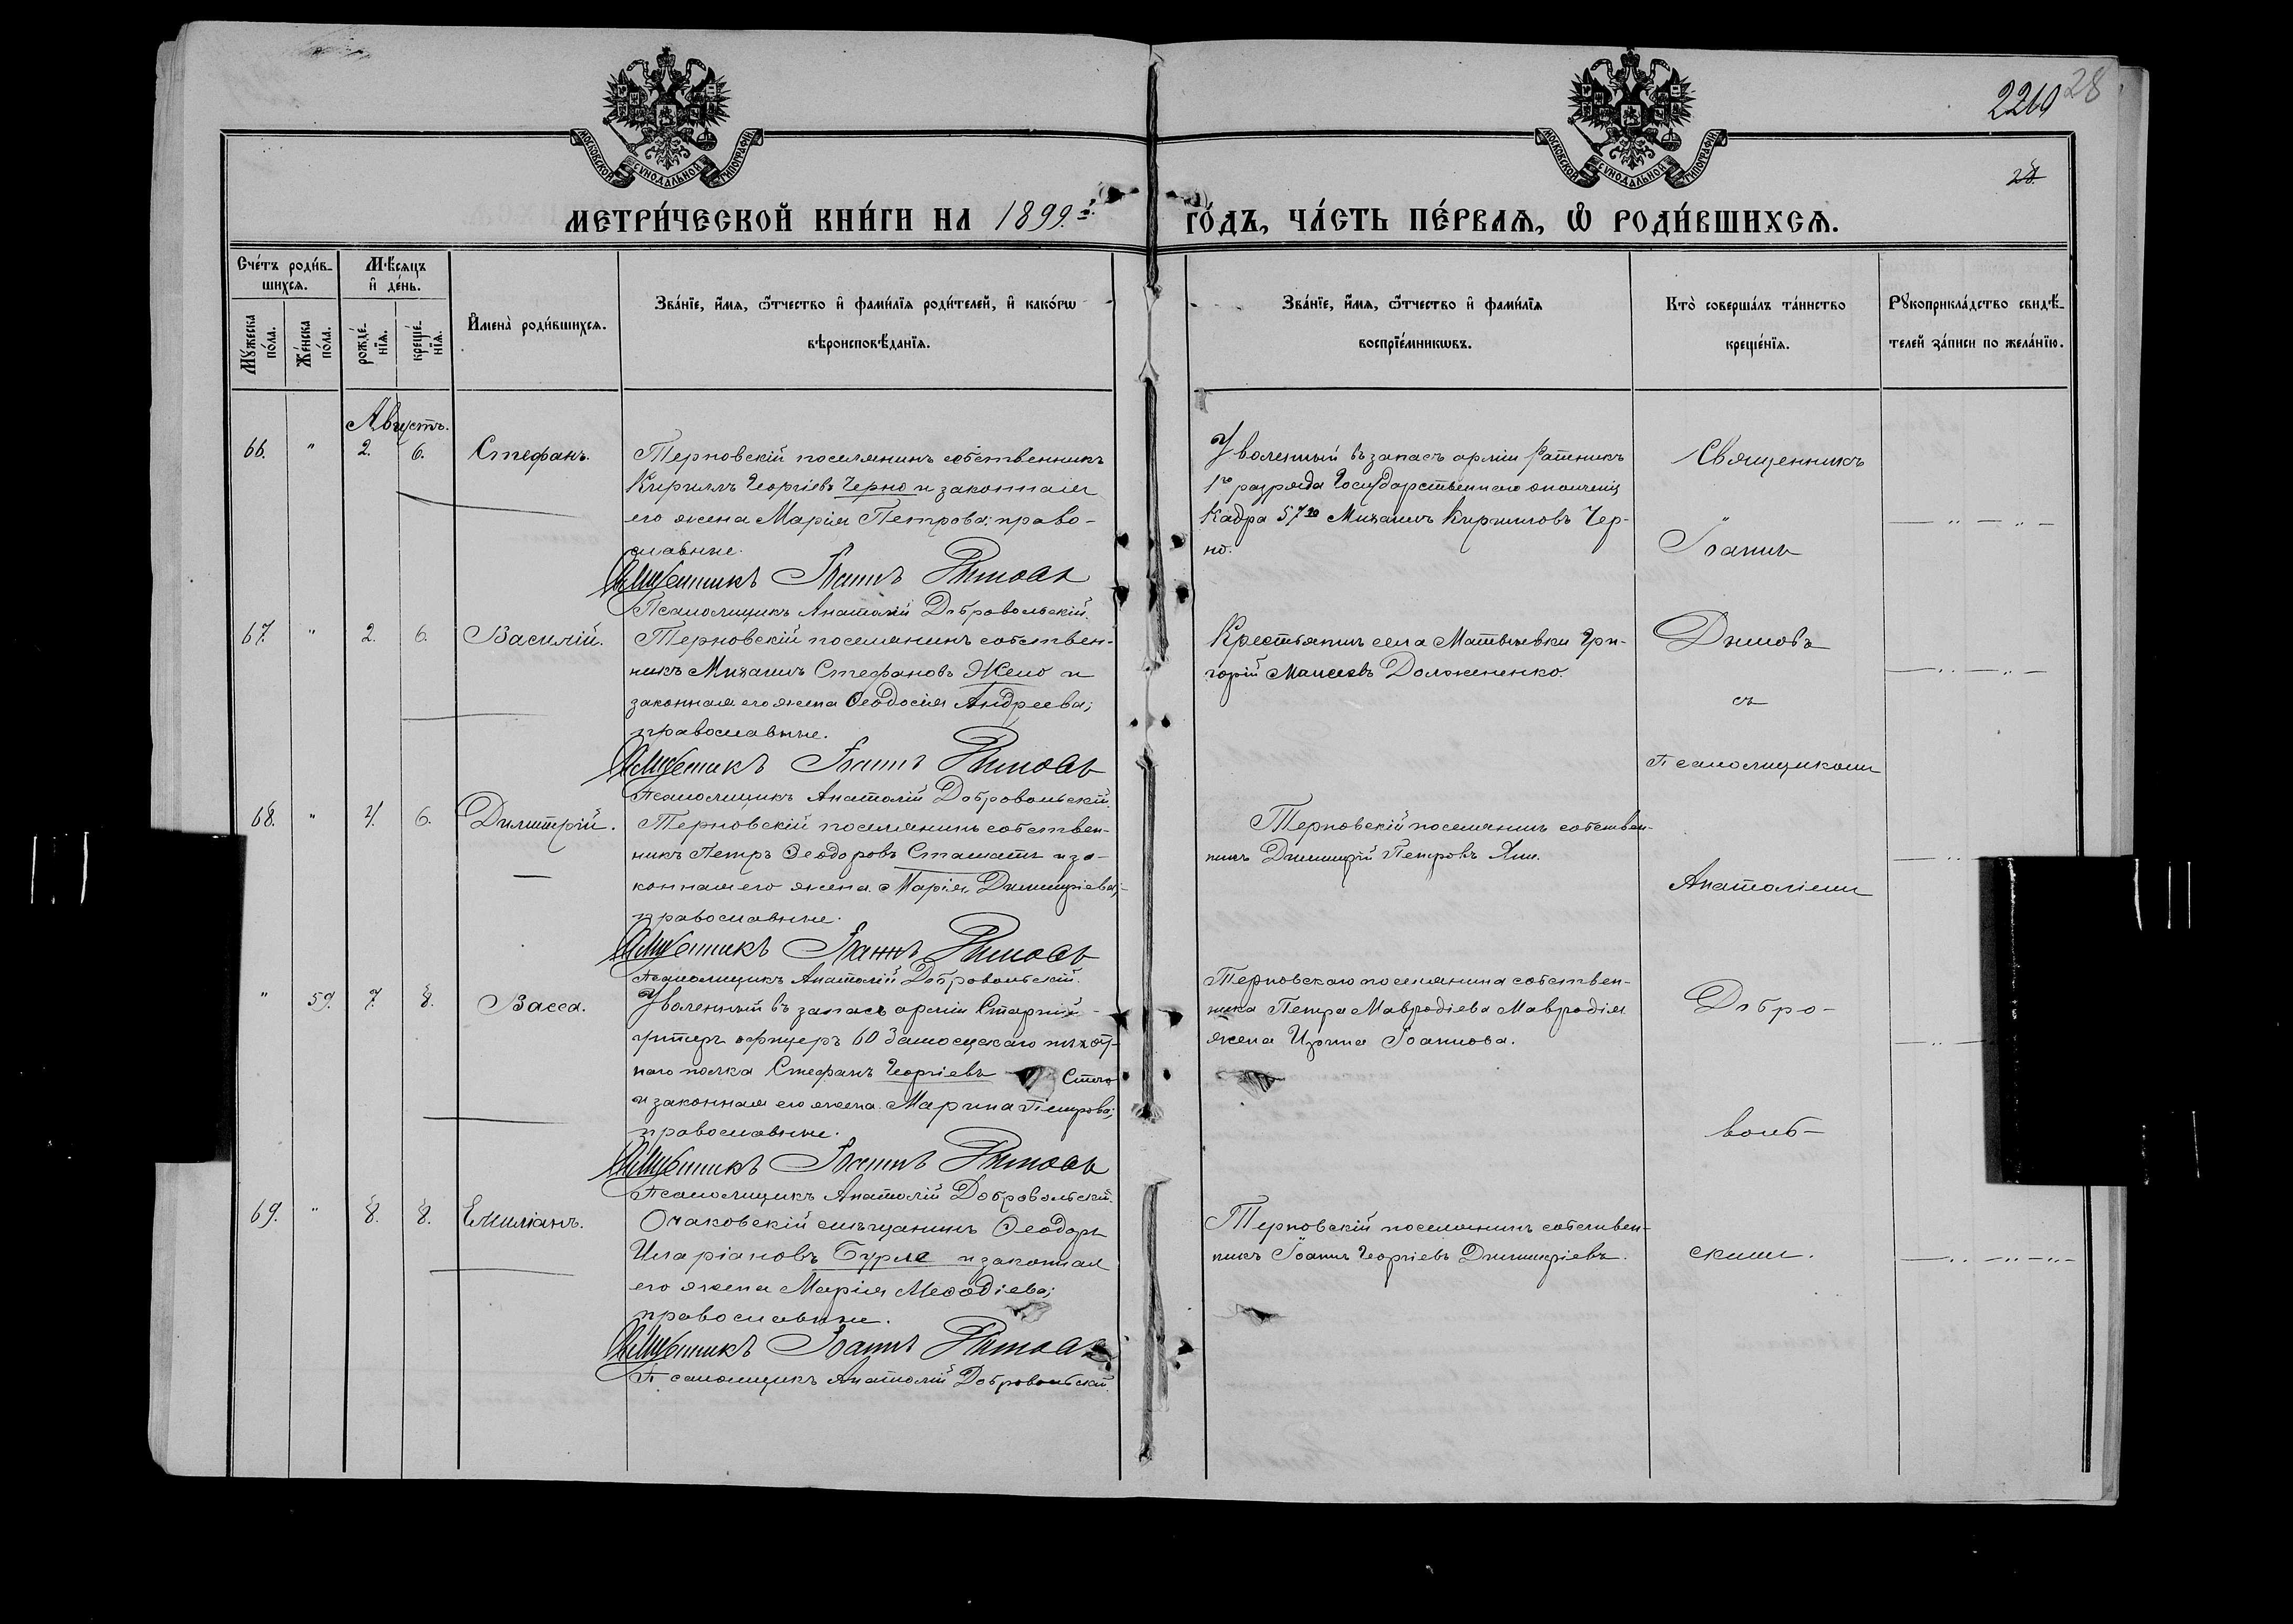 2210 28
28.
МОСКОВСКОЙ СУНОДАЛЬНОЙ ТИПОГРАФІИ
МОСКОВСКОЙ СУНОДАЛЬНОЙ ТИПОГРАФІИ
МЕТРИ́ЧЕСКОЙ КНИ́ГИ НА 1899.й ГО́ДЪ, ЧА́СТЬ ПЕ́РВАѦ, Ѡ РОДИ́ВШИХСѦ.
Сче́тъ роди́в-
шихсѧ.
Мꙋ́жеска по́ла.
Же́нска по́ла.
Мѣ́сѧцъ
и҆ де́нь.
рожде́-
нїѧ.
креще́-
нїѧ.
И҆мена̀ роди́вшихсѧ.
Зва́нїе, и҆́мѧ, ѻ҆́тчество и҆ фами́лїѧ роди́телей, и҆ како́гѡ
вѣроисповѣ́данїѧ.
Зва́нїе, и҆́мѧ, ѻ҆́тчество и҆ фами́лїѧ
воспрїе́мникѡвъ.
Кто̀ соверша́лъ та́инство
креще́нїѧ.
Рꙋкоприкла́дство свидѣ́-
телей за́писи по жела́нїю.
Августъ.
66. " 2. 6. Стефанъ.
Терновскій поселянинъ собственникъ
Кириллъ Георгіевъ Черно и законная
его жена Марія Петрова; право-
славные.
Священникъ Іоаннъ Димовъ
Псаломщикъ Анатолій Добровольскій.
Уволенный въ запасъ арміи ратникъ
1го разряда Государственнаго ополченія
Кадра 57го Михаилъ Кирилловъ Чер-
но.
67. " 2. 6. Василій.
Терновскій поселянинъ собствен-
никъ Михаилъ Стефановъ Жело и
законная его жена Ѳеодосія Андреева;
православные.
Священникъ Іоаннъ Димовъ
Псаломщикъ Анатолій Добровольскій.
Крестьянинъ села Матвѣевки Гри-
горій Моисеевъ Должененко.
68. " 4. 6. Димитрій.
Терновскій поселянинъ собствен-
никъ Петръ Ѳеодоровъ Стаматъ и за-
конная его жена Марія Димитріева;
православные.
Священникъ Іоаннъ Димовъ
Псаломщикъ Анатолій Добровольскій.
Терновскій поселянинъ собствен-
никъ Димитрій Петровъ
" 59. 7. 8. Васса.
Уволенный въ запасъ арміи Старшій
унтеръ офицеръ 60 Замосцскаго пѣхот-
наго полка Стефанъ Георгіевъ
и законная его жена Марина Петрова;
православные.
Священникъ Іоаннъ Димовъ
Псаломщикъ Анатолій Добровольскій.
Терновскаго поселянина собствен-
ника Петра Мавродіева Мавродія
жена Ирина Іоаннова.
69. " 8. 8. Емиліанъ.
Очаковскій мѣщанинъ Ѳеодоръ
Иларіановъ Бурле и законная
его жена Марія Меѳодіева;
православные.
Священникъ Іоаннъ Димовъ
Псаломщикъ Анатолій Добровольскій.
Терновскій поселянинъ собствен-
никъ Іоаннъ Георгіевъ Димитріевъ.
Священникъ
Іоаннъ
Димовъ
съ
Псаломщикомъ
Анатоліемъ
Добро-
воль-
скимъ.